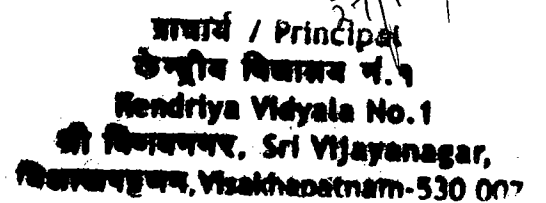 प्राचार्य / Principal
केन्द्रीय विद्यालय नं.१
Kendriya Vidyala No.1
श्री विजयनगर, Sri Vijayanagar,
विशाखापट्टणम, Visakhapatnam-530 007